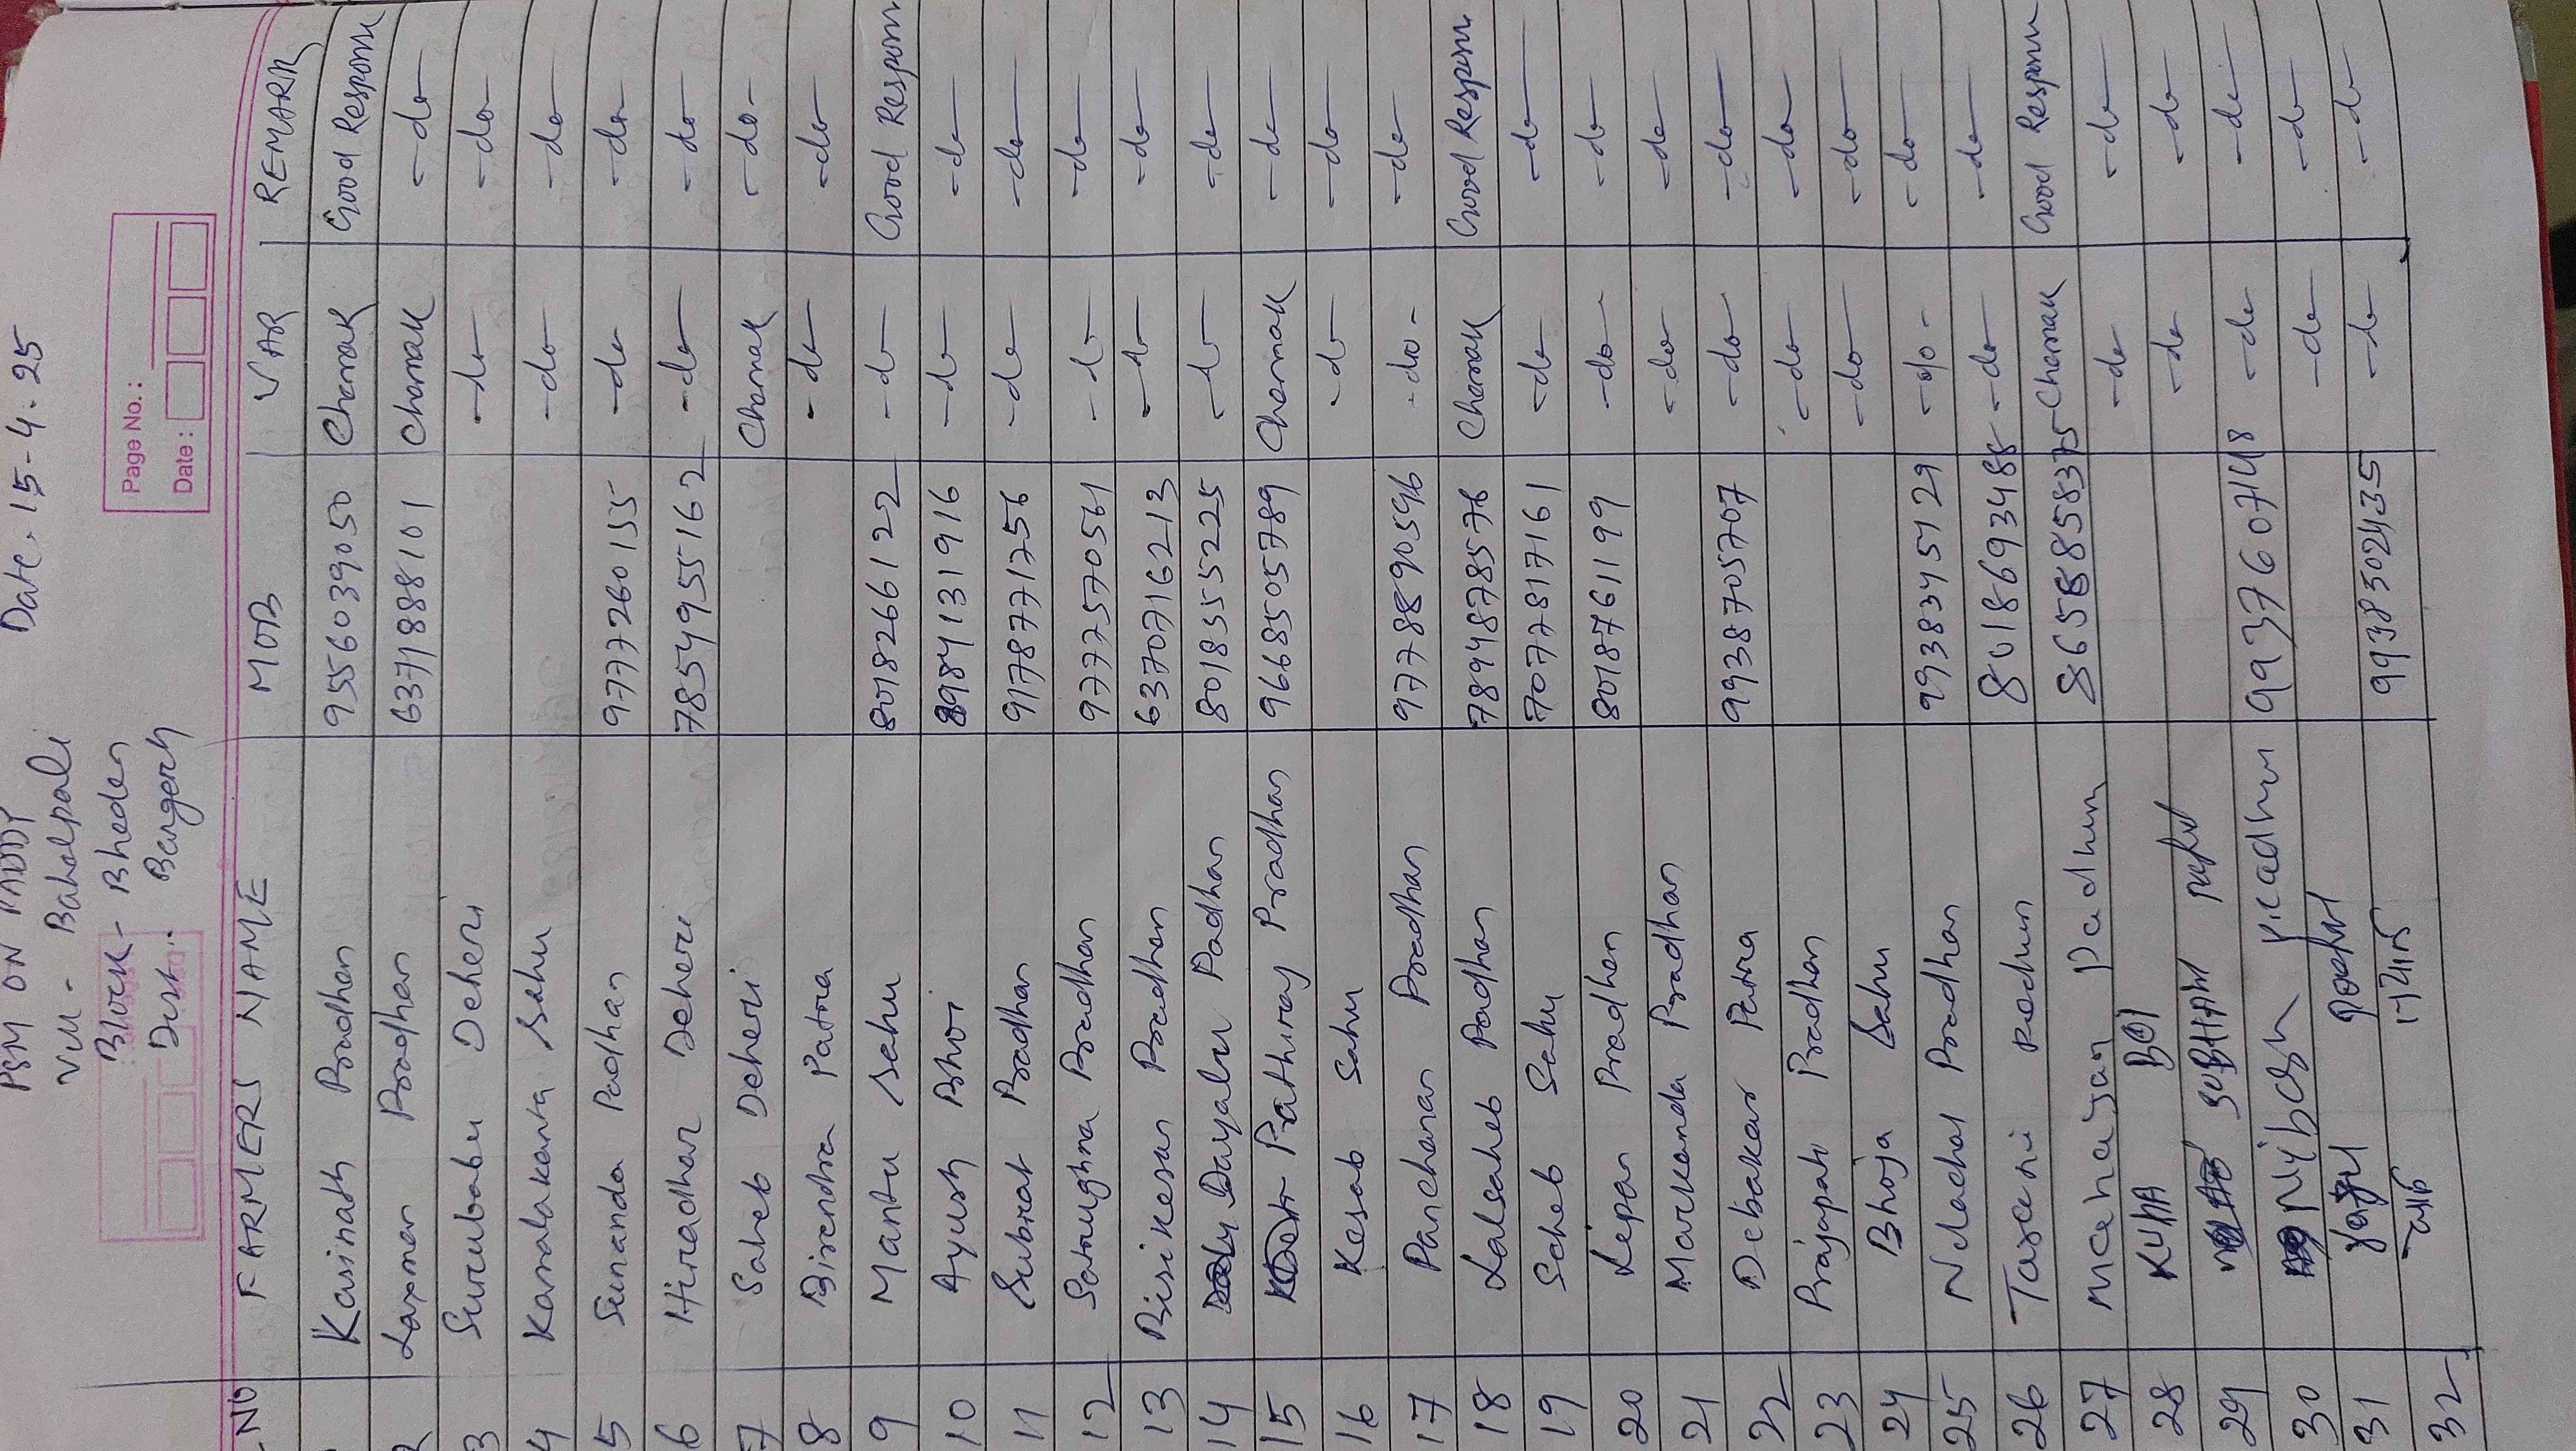 PSM ON PADDY Date. 15-4-25
Vill - Bahalpali
Block - Bheden
Dist. Bargarh
Page No.:
Date:
NO FARMERS NAME MOB VAR REMARK
Kasinath Pradhan 9556039050 Chamak Good Response
2 Laxman Pradhan 6371888101 Chamak -do-
3 Surubabu Deheri -do- -do-
4 Kamalakanta Sahu -do- -do-
5 Sunanda Padhan 9777260155 -do- -do-
6 Hiradhar Deheri 7854955162 -do- -do-
7 Saheb Deheri Chamak -do-
8 Birendra Patra -do- -do-
9 Mantu Sahu 8018266122 -do- Good Respons
10 Ayush Bhoi 8984131916 -do- -do-
11 Subrat Pradhan 9178771256 -do- -do-
12 Satrughna Pradhan 9777570561 -do- -do-
13 Risikesan Pradhan 6370716213 -do- -do-
14 Dayalu Padhan 8018355225 -do- -do-
15 Prathiraj Pradhan 9668505789 Chamak -do-
16 Kesab Sahu -do- -do-
17 Panchanan Pradhan 9778890596 -do- -do-
18 Lalsaheb Pradhan 7894878578 Chamak Good Respons
19 Saheb Sahu 7077817161 -do- -do-
20 Lipan Pradhan 8018761199 -do- -do-
21 Markanda Pradhan -do- -do-
22 Debakar Patra 9938705707 -do- -do-
23 Prajapati Pradhan -do- -do-
24 Bhoja Sahu -do- -do-
25 Nilachal Pradhan 9938345129 -do- -do-
26 Tarani Padhan 8018693488 -do- -do-
27 Padhan Chamak Good Respons
28 KUHA BOI -do- -do-
29 SUBHAM -do- -do-
30 9937607148 -do- -do-
31 -do- -do-
32 9938302435 -do- -do-